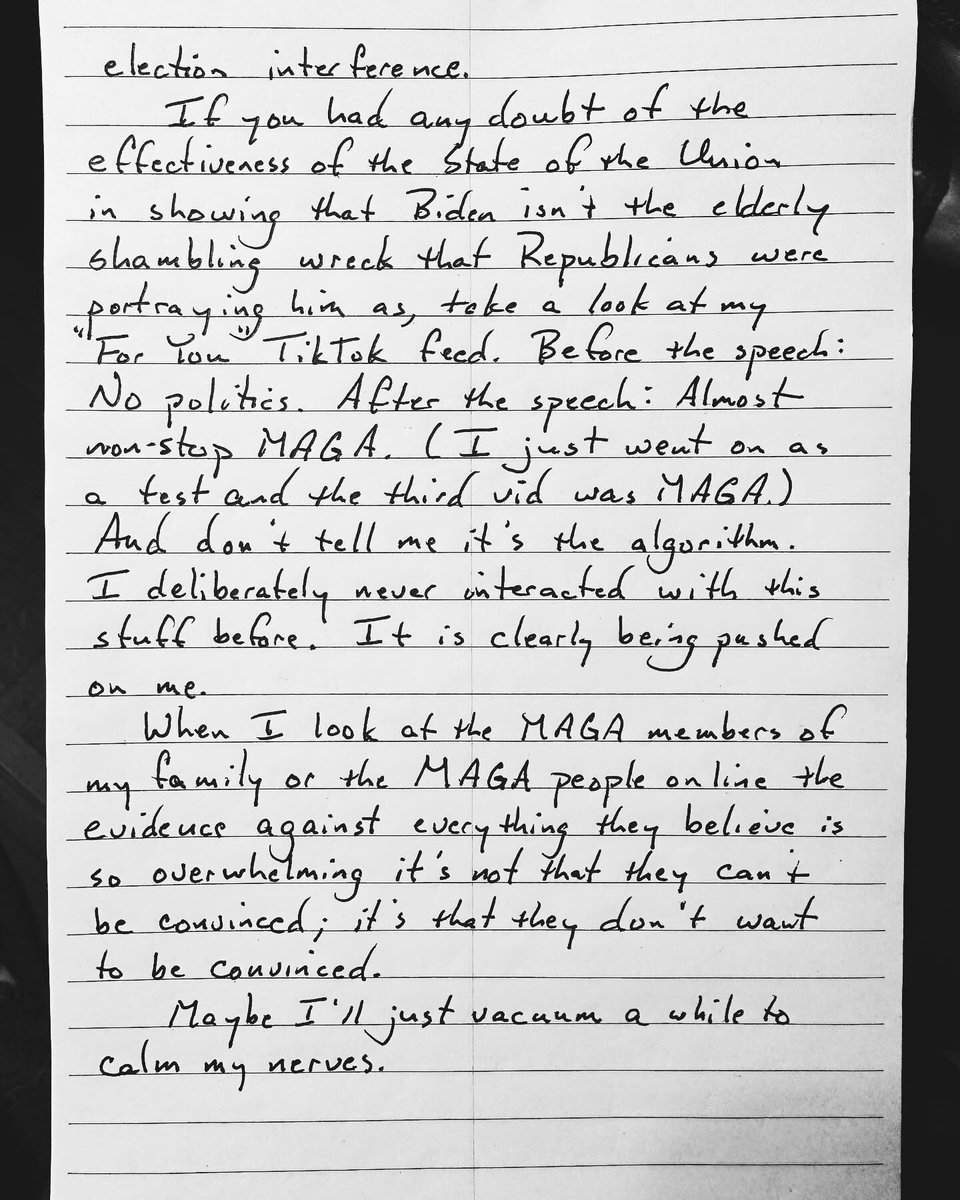 election interference.
If you had any doubt of the
effectiveness of the State of the Union
in showing that Biden isn't the elderly
shambling wreck that Republicans were
portraying him as, take a look at my
"For You" TikTok feed. Before the speech:
No politics. After the speech: Almost
non-stop MAGA. (I just went on as
a test and the third vid was MAGA.)
And don't tell me it's the algorithm.
I deliberately never interacted with this
stuff before. It is clearly being pushed
on me.
When I look at the MAGA members of
my family or the MAGA people online the
evidence against everything they believe is
so overwhelming it's not that they can't
be convinced; it's that they don't want
to be convinced.
Maybe I'll just vacuum a while to
calm my nerves.